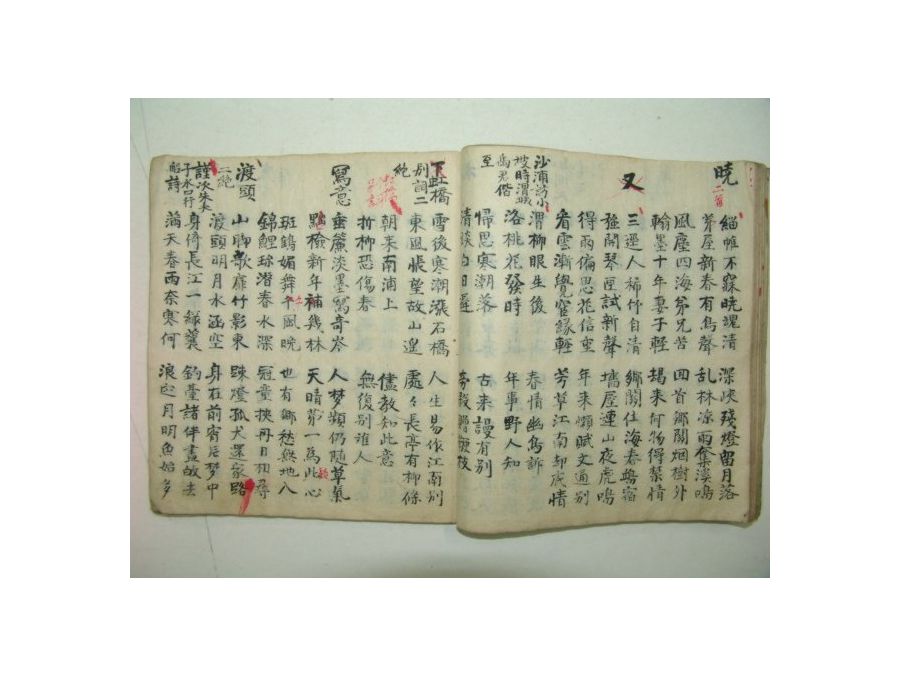 曉
二首
緇帷不寐曉魂清 深峽殘燈留月落
茅屋新春有鳥聲 乱林凉雨奪溪鳴
風塵四海 兄苦 回首鄕關烟樹外
翰墨十年妻子輕 朅來何物得禁情
又
三逕人稀竹自清 鄕關 海春無宿
強開琴匣試新聲 墻屋連山夜虎鳴
得雨偏思花信重 年來懶賦文通別
看雲漸覺宦緣輕 芳草江南却感情
沙浦訪小
坡時渭城
禹君偕
至
渭柳眼生後 春情幽鳥訴
洛桃花發時 年事野人知
歸思寒潮落 古來謾有別
淸談白日遲
下虹橋
別詞二
絶
雪後寒潮漲石橋 人生易作江南別
東風悵望故山遑 處々長亭有柳條
朝來南浦上 儘教知此意
折柳恐傷春 無復別離人
寫意
垂簾淡墨寫奇岑 人夢頻仍隨草氣
點檢新年補幾林 天晴第一爲此心
斑 媚舞午風晩 也有鄕愁無地入
錦鯉琮潛春水深 冠童挾冊日相尋
渡頭
二絶
山聊歌 竹影東 踈燈孤犬還家路
渡頭明月水涵空 身在前宵后夢中
謹次朱夫
子水口行
船詩
身倚長江一緑簑 釣臺諸伴盡皈去
滿天春雨奈寒何 浪 月明魚始多